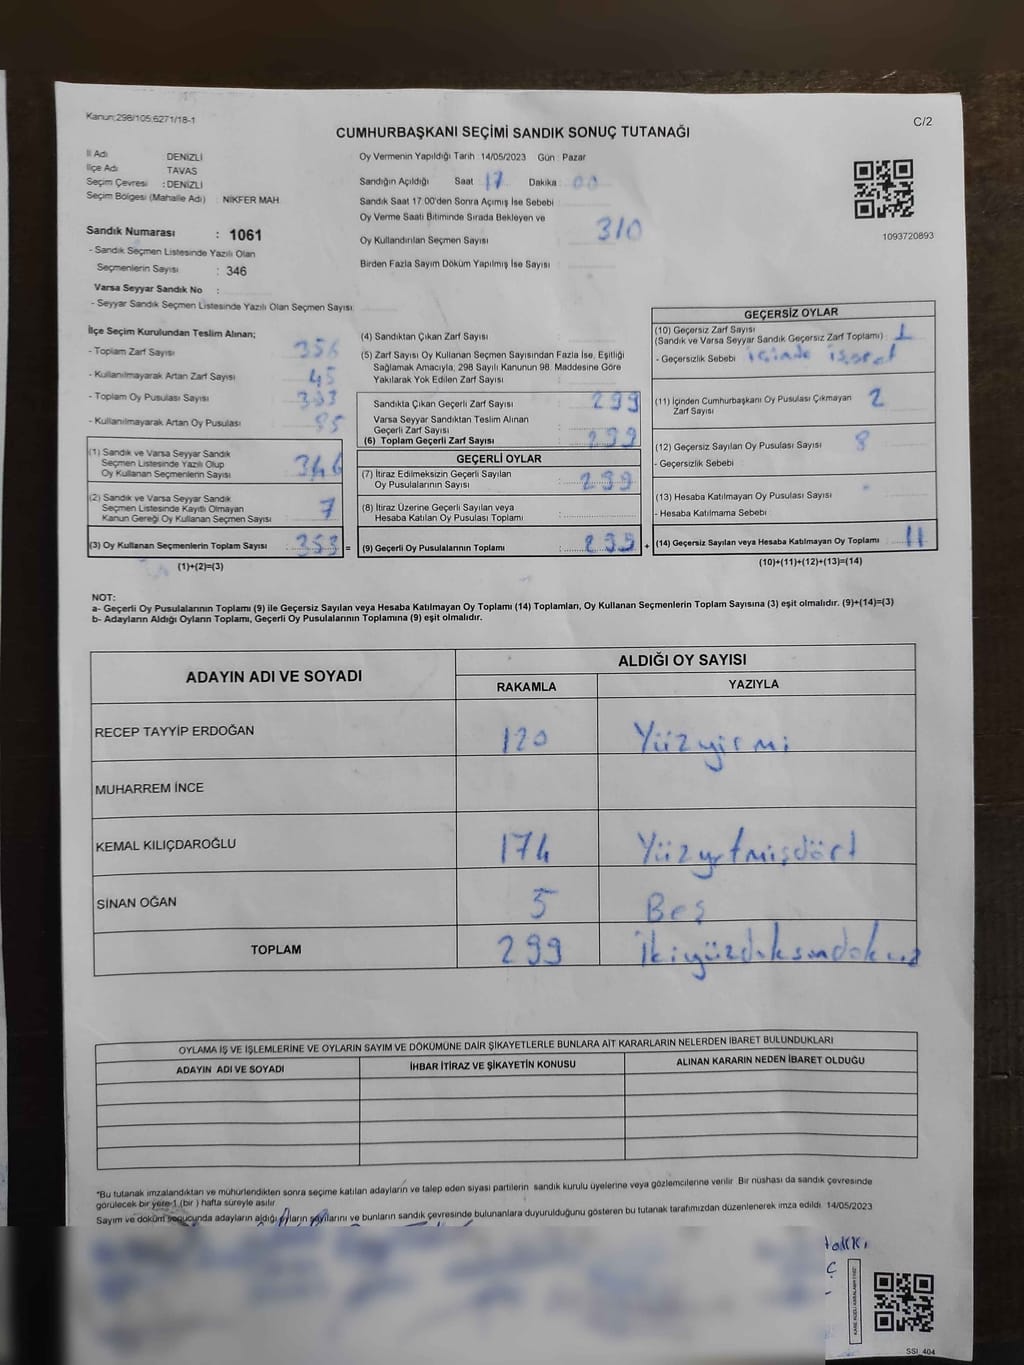 Kanun:298/105;6271/18-1
C/2
CUMHURBAŞKANI SEÇİMİ SANDIK SONUÇ TUTANAĞI
İl Adı DENİZLİ
İlçe Adı TAVAS
Seçim Çevresi : DENİZLİ
Seçim Bölgesi (Mahalle Adı) : NİKFER MAH.
Sandık Numarası : 1061
- Sandık Seçmen Listesinde Yazılı Olan
Seçmenlerin Sayısı : 346
Varsa Seyyar Sandık No :
- Seyyar Sandık Seçmen Listesinde Yazılı Olan Seçmen Sayısı
Oy Vermenin Yapıldığı Tarih : 14/05/2023 Gün : Pazar
Sandığın Açıldığı Saat 17 Dakika 00
Sandık Saat 17.00'den Sonra Açımış İse Sebebi
Oy Verme Saati Bitiminde Sırada Bekleyen ve
Oy Kullandırılan Seçmen Sayısı 310
Birden Fazla Sayım Döküm Yapılmış İse Sayısı
1093720893
İlçe Seçim Kurulundan Teslim Alınan;
- Toplam Zarf Sayısı 356
- Kullanılmayarak Artan Zarf Sayısı 45
- Toplam Oy Pusulası Sayısı
- Kullanılmayarak Artan Oy Pusulası 85
(1) Sandık ve Varsa Seyyar Sandık
Seçmen Listesinde Yazılı Olup
Oy Kullanan Seçmenlerin Sayısı 346
(2) Sandık ve Varsa Seyyar Sandık
Seçmen Listesinde Kayıtlı Olmayan
Kanun Gereği Oy Kullanan Seçmen Sayısı 7
(3) Oy Kullanan Seçmenlerin Toplam Sayısı : 353 =
(1)+(2)=(3)
(4) Sandıktan Çıkan Zarf Sayısı
(5) Zarf Sayısı Oy Kullanan Seçmen Sayısından Fazla İse, Eşitliği
Sağlamak Amacıyla; 298 Sayılı Kanunun 98. Maddesine Göre
Yakılarak Yok Edilen Zarf Sayısı
Sandıkta Çıkan Geçerli Zarf Sayısı 299
Varsa Seyyar Sandıktan Teslim Alınan
Geçerli Zarf Sayısı
(6) Toplam Geçerli Zarf Sayısı 299
GEÇERLİ OYLAR
(7) İtiraz Edilmeksizin Geçerli Sayılan
Oy Pusulalarının Sayısı : 299
(8) İtiraz Üzerine Geçerli Sayılan veya
Hesaba Katılan Oy Pusulası Toplamı :
(9) Geçerli Oy Pusulalarının Toplamı : 299 +
GEÇERSİZ OYLAR
(10) Geçersiz Zarf Sayısı
(Sandık ve Varsa Seyyar Sandık Geçersiz Zarf Toplamı) : 1
- Geçersizlik Sebebi içinde işaret
(11) İçinden Cumhurbaşkanı Oy Pusulası Çıkmayan
Zarf Sayısı 2
(12) Geçersiz Sayılan Oy Pusulası Sayısı 8
- Geçersizlik Sebebi
(13) Hesaba Katılmayan Oy Pusulası Sayısı
- Hesaba Katılmama Sebebi
(14) Geçersiz Sayılan veya Hesaba Katılmayan Oy Toplamı 11
(10)+(11)+(12)+(13)=(14)
NOT:
a- Geçerli Oy Pusulalarının Toplamı (9) ile Geçersiz Sayılan veya Hesaba Katılmayan Oy Toplamı (14) Toplamları, Oy Kullanan Seçmenlerin Toplam Sayısına (3) eşit olmalıdır. (9)+(14)=(3)
b- Adayların Aldığı Oyların Toplamı, Geçerli Oy Pusulalarının Toplamına (9) eşit olmalıdır.
ADAYIN ADI VE SOYADI ALDIĞI OY SAYISI
RAKAMLA YAZIYLA
RECEP TAYYİP ERDOĞAN 120 Yüzyirmi
MUHARREM İNCE
KEMAL KILIÇDAROĞLU 174 Yüzyetmişdört
SİNAN OĞAN 5 Beş
TOPLAM 299 İkiyüzdoksandokuz
OYLAMA İŞ VE İŞLEMLERİNE VE OYLARIN SAYIM VE DÖKÜMÜNE DAİR ŞİKAYETLERLE BUNLARA AİT KARARLARIN NELERDEN İBARET BULUNDUKLARI
ADAYIN ADI VE SOYADI İHBAR İTİRAZ VE ŞİKAYETİN KONUSU ALINAN KARARIN NEDEN İBARET OLDUĞU
*Bu tutanak imzalandıktan ve mühürlendikten sonra seçime katılan adayların ve talep eden siyasi partilerin sandık kurulu üyelerine veya gözlemcilerine verilir. Bir nüshası da sandık çevresinde
görülecek bir yere 1 (bir) hafta süreyle asılır.
Sayım ve döküm sonucunda adayların aldığı oyların sayılarını ve bunların sandık çevresinde bulunanlara duyurulduğunu gösteren bu tutanak tarafımızdan düzenlenerek imza edildi. 14/05/2023
SSI_404